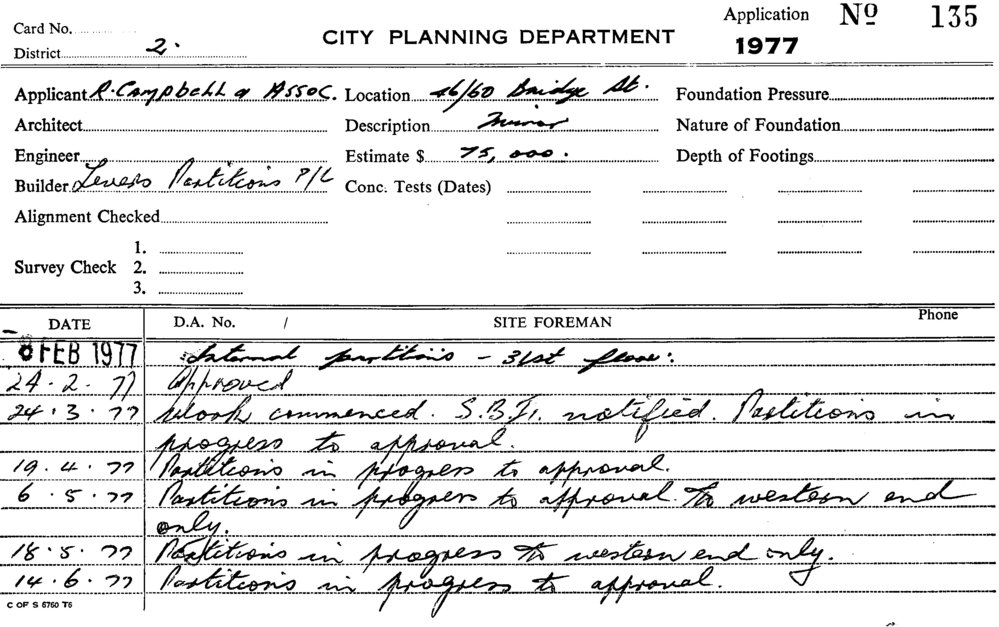 Card No.
District 2.
CITY PLANNING DEPARTMENT
Application Nº 135
1977
Applicant R. Campbell & Assoc. Location 46/60 Bridge St. Foundation Pressure
Architect Description Minor Nature of Foundation
Engineer Estimate $ 75,000. Depth of Footings
Builder Levers Partitions P/L Conc. Tests (Dates)
Alignment Checked
1.
Survey Check 2.
3.
DATE D.A. No. / SITE FOREMAN Phone
8 FEB 1977 Internal partitions - 31st floor.
24.2.77 Approved
24.3.77 Work commenced. S.B.I. notified. Partitions in
progress to approval.
19.4.77 Partitions in progress to approval.
6.5.77 Partitions in progress to approval. To western end
only.
18.5.77 Partitions in progress to western end only.
14.6.77 Partitions in progress to approval.
C OF S 6760 T6